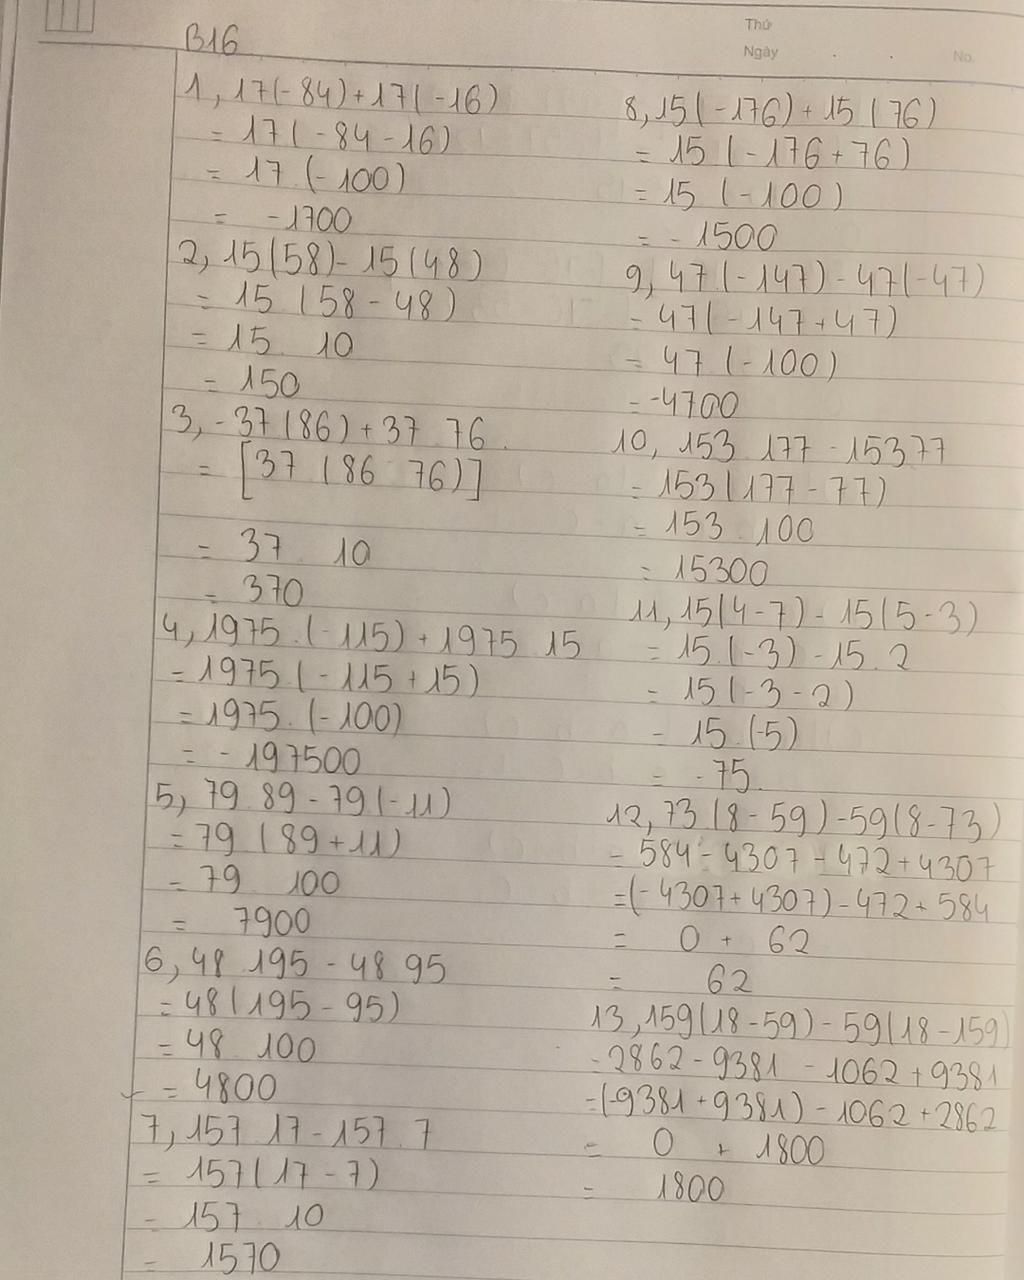 B16
Thứ
Ngày
No.
1, 17(-84)+17(-16)
= 17(-84-16)
= 17 (-100)
= -1700
2, 15(58)-15(48)
= 15 (58-48)
= 15 10
= 150
3, -37(86)+37 76
= [37 (86 76)]
= 37 10
= 370
4, 1975.(-115)+1975 15
= 1975(-115+15)
= 1975.(-100)
= -197500
5, 79 89-79(-11)
= 79 (89+11)
= 79 100
= 7900
6, 48 195-48 95
= 48(195-95)
= 48 100
= 4800
7, 157 17-157.7
= 157(17-7)
= 157 10
= 1570
8, 15(-176)+15(76)
= 15 (-176+76)
= 15 (-100)
= -1500
9, 47(-147)-47(-47)
= 47(-147+47)
= 47 (-100)
= -4700
10, 153 177-15377
= 153(177-77)
= 153 100
= 15300
11, 15(4-7)-15(5-3)
= 15.(-3)-15.2
= 15(-3-2)
= 15.(-5)
= -75
12, 73(8-59)-59(8-73)
= 584-4307-472+4307
=(-4307+4307)-472+584
= 0 + 62
= 62
13, 159(18-59)-59(18-159)
= 2862-9381-1062+9381
=(-9381+9381)-1062+2862
= 0 + 1800
= 1800